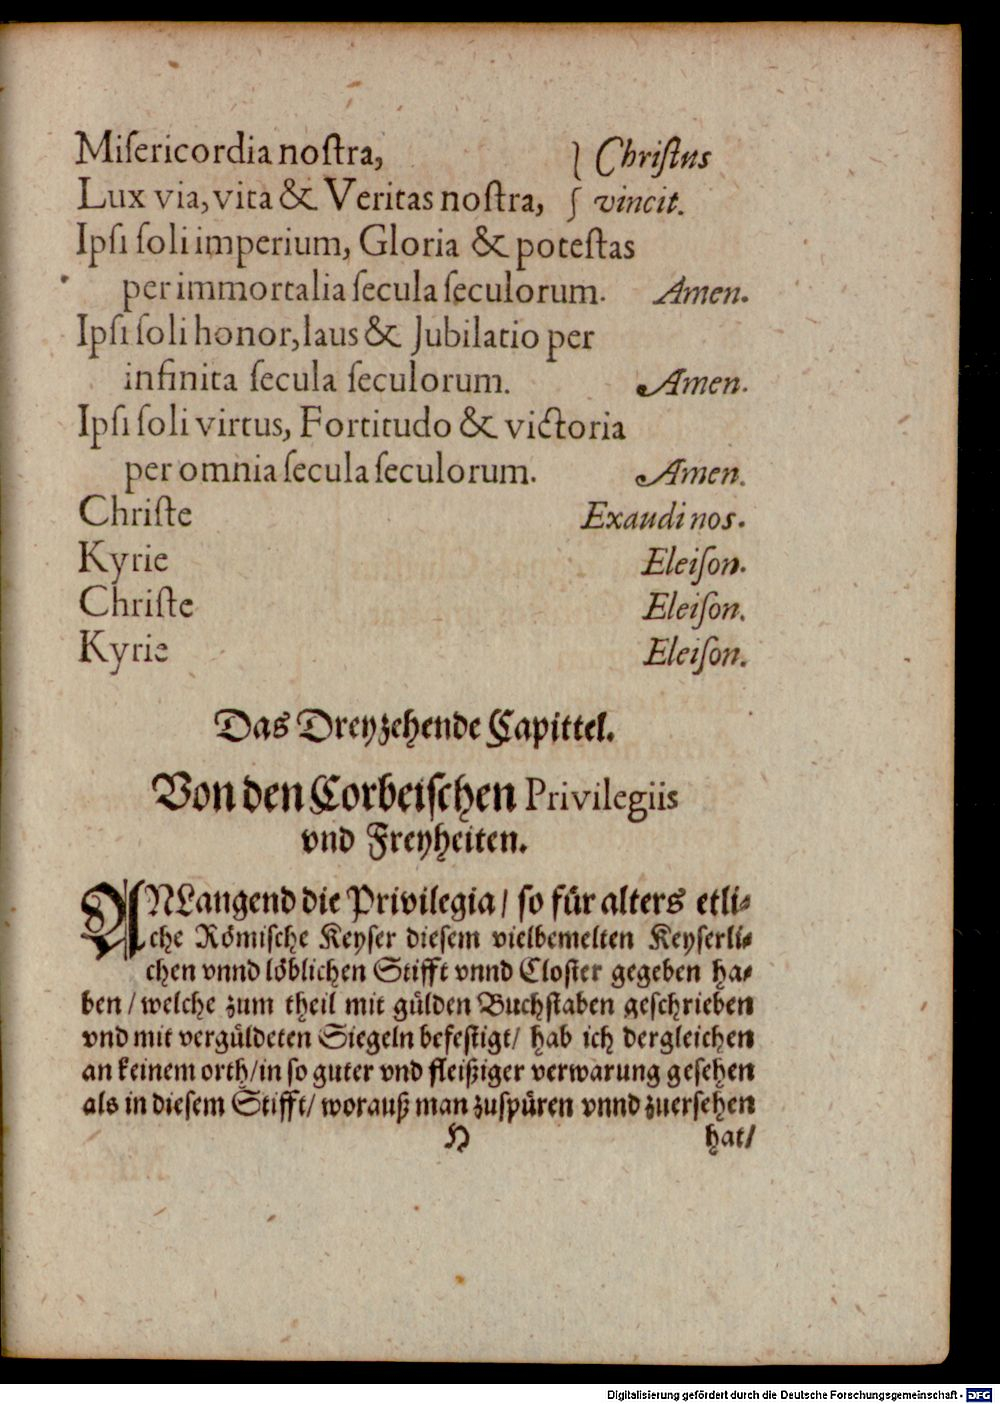 Miſericordia noſtra, } Chriſtus
Lux via, vita & Veritas noſtra, } vincit.
Ipſi ſoli imperium, Gloria & poteſtas
per immortalia ſecula ſeculorum. Amen.
Ipſi ſoli honor, laus & Jubilatio per
infinita ſecula ſeculorum. Amen.
Ipſi ſoli virtus, Fortitudo & victoria
per omnia ſecula ſeculorum. Amen.
Chriſte Exaudi nos.
Kyrie Eleiſon.
Chriſte Eleiſon.
Kyrie Eleiſon.
Das Dreyzehende Capittel.
Von den Corbeiſchen Privilegiis
vnd Freyheiten.
ANLangend die Privilegia / ſo fuͤr alters etli⸗
che Roͤmiſche Keyſer dieſem vielbemelten Keyſerli⸗
chen vnnd loͤblichen Stifft vnnd Cloſter gegeben ha⸗
ben / welche zum theil mit guͤlden Buchſtaben geſchrieben
vnd mit verguͤldeten Siegeln befeſtigt / hab ich dergleichen
an keinem orth / in ſo guter vnd fleißiger verwarung geſehen
als in dieſem Stifft / worauß man zuſpuͤren vnnd zuerſehen
H hat /
Digitalisierung gefördert durch die Deutsche Forschungsgemeinschaft - DFG